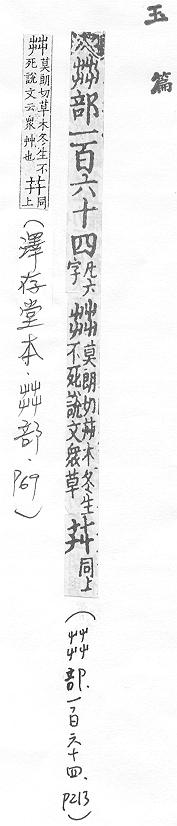 玉篇
茻部一百六十四凡六字茻莫朗切草木冬生不死說文衆草𦬠同上
(茻部.一百六十四、P213)
茻莫朗切草木冬生不死說文云衆艸也𦬠同上
(澤存堂本.茻部.P69)